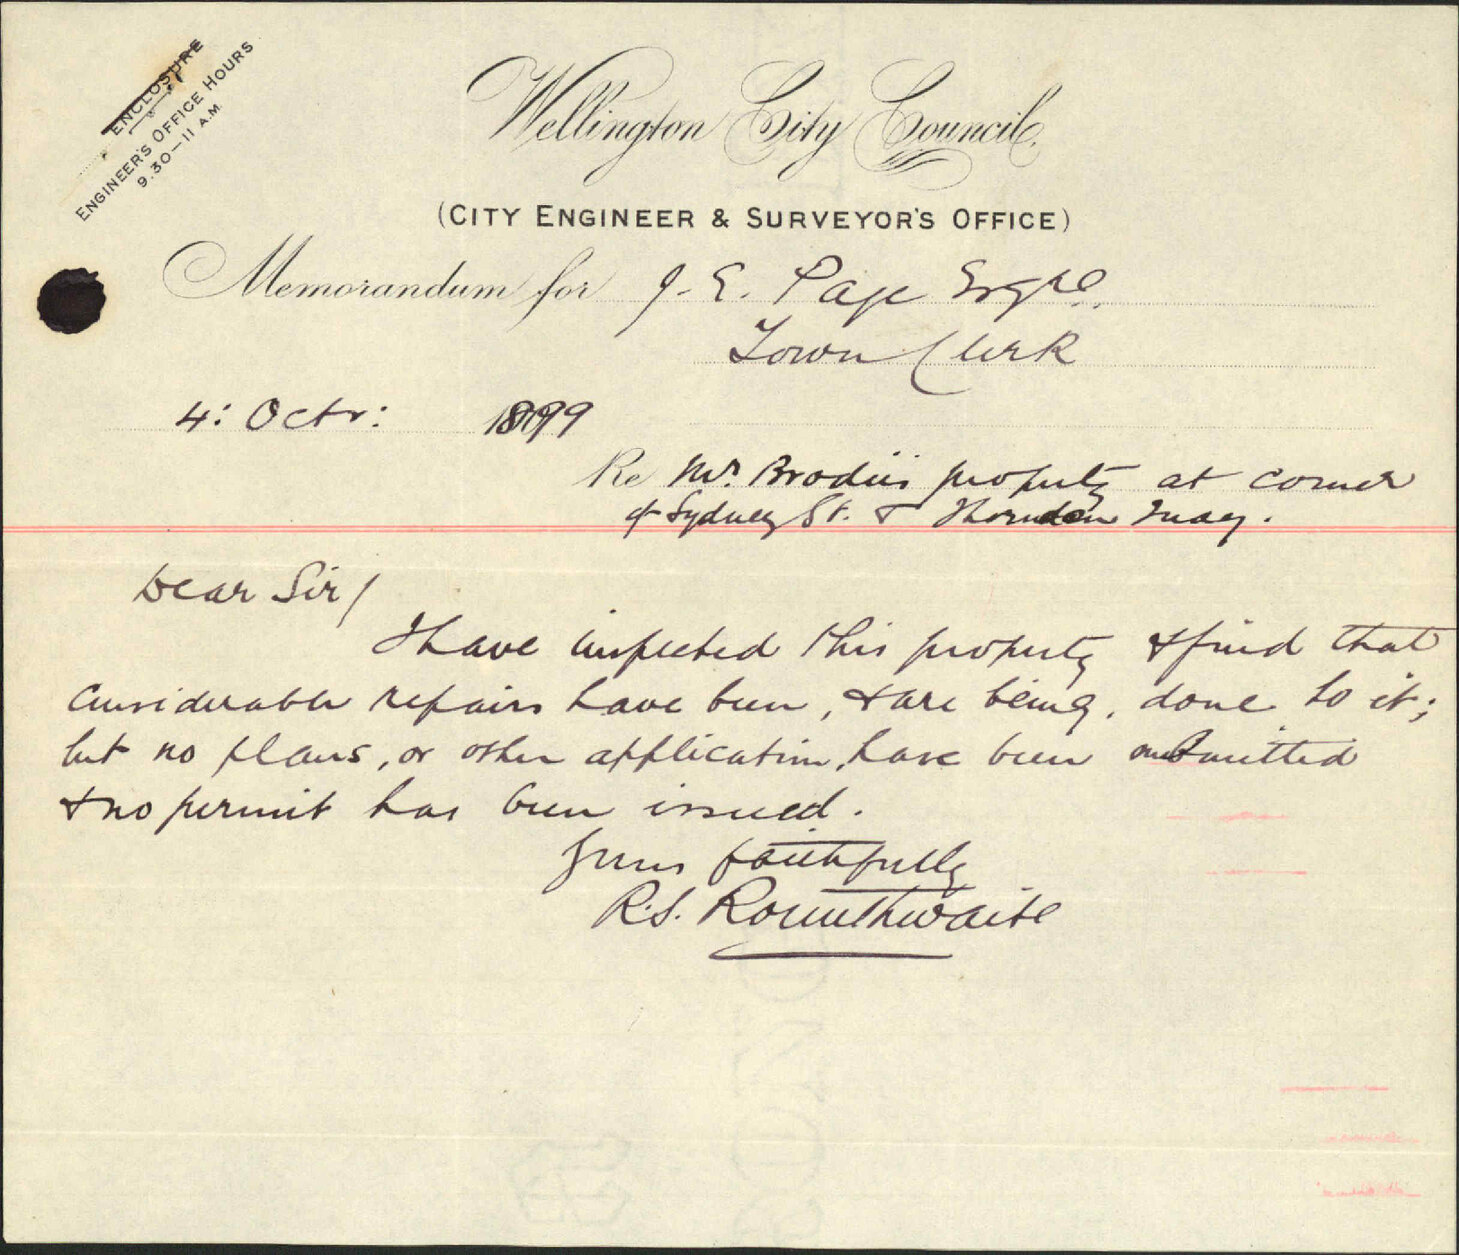 ENCLOSURE
ENGINEER'S OFFICE HOURS
9.30—11 A.M
Wellington City Council.
(CITY ENGINEER & SURVEYOR'S OFFICE)
Memorandum for J. E. Page Esqre.
Town Clerk
4: Octr: 1899
Re Mr. Brodie's property at corner
of Sydney St. & Thorndon Quay.
Dear Sir/
I have inspected this property & find that
considerable repairs have been, & are being, done to it;
but no plans, or other application, have been submitted
& no permit has been issued.
Yours faithfully
R.S. Rounthwaite